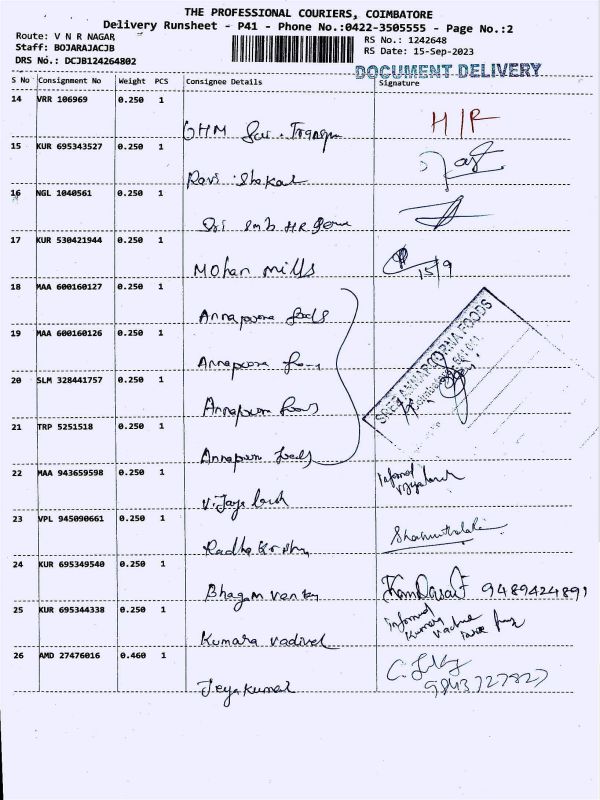 THE PROFESSIONAL COURIERS, COIMBATORE
Delivery Runsheet - P41 - Phone No.:0422-3505555 - Page No.:2
Route: V N R NAGAR
Staff: BOJARAJACJB
DRS No.: DCJB124264802
RS No.: 1242648
RS Date: 15-Sep-2023
DOCUMENT DELIVERY
S No Consignment No Weight PCS Consignee Details Signature
14 VRR 106969 0.250 1
GHM H/R
15 KUR 695343527 0.250 1
Ravi Shakar
16 NGL 1040561 0.250 1
17 KUR 530421944 0.250 1
Mohan mills 15/9
18 MAA 600160127 0.250 1
Annapoorna foods
19 MAA 600160126 0.250 1
Annapoorna
20 SLM 328441757 0.250 1
Annapurn foods
21 TRP 5251518 0.250 1
Annapurn foods
SREE ANNAPOORNA FOODS
22 MAA 943659598 0.250 1
Informed
23 VPL 945090661 0.250 1
Radha Shakunthala
24 KUR 695349540 0.250 1
Bhagam 9489424891
25 KUR 695344338 0.250 1
Kumara vadivel
informed
26 AMD 27476016 0.460 1
Jeyakumar
9843727827